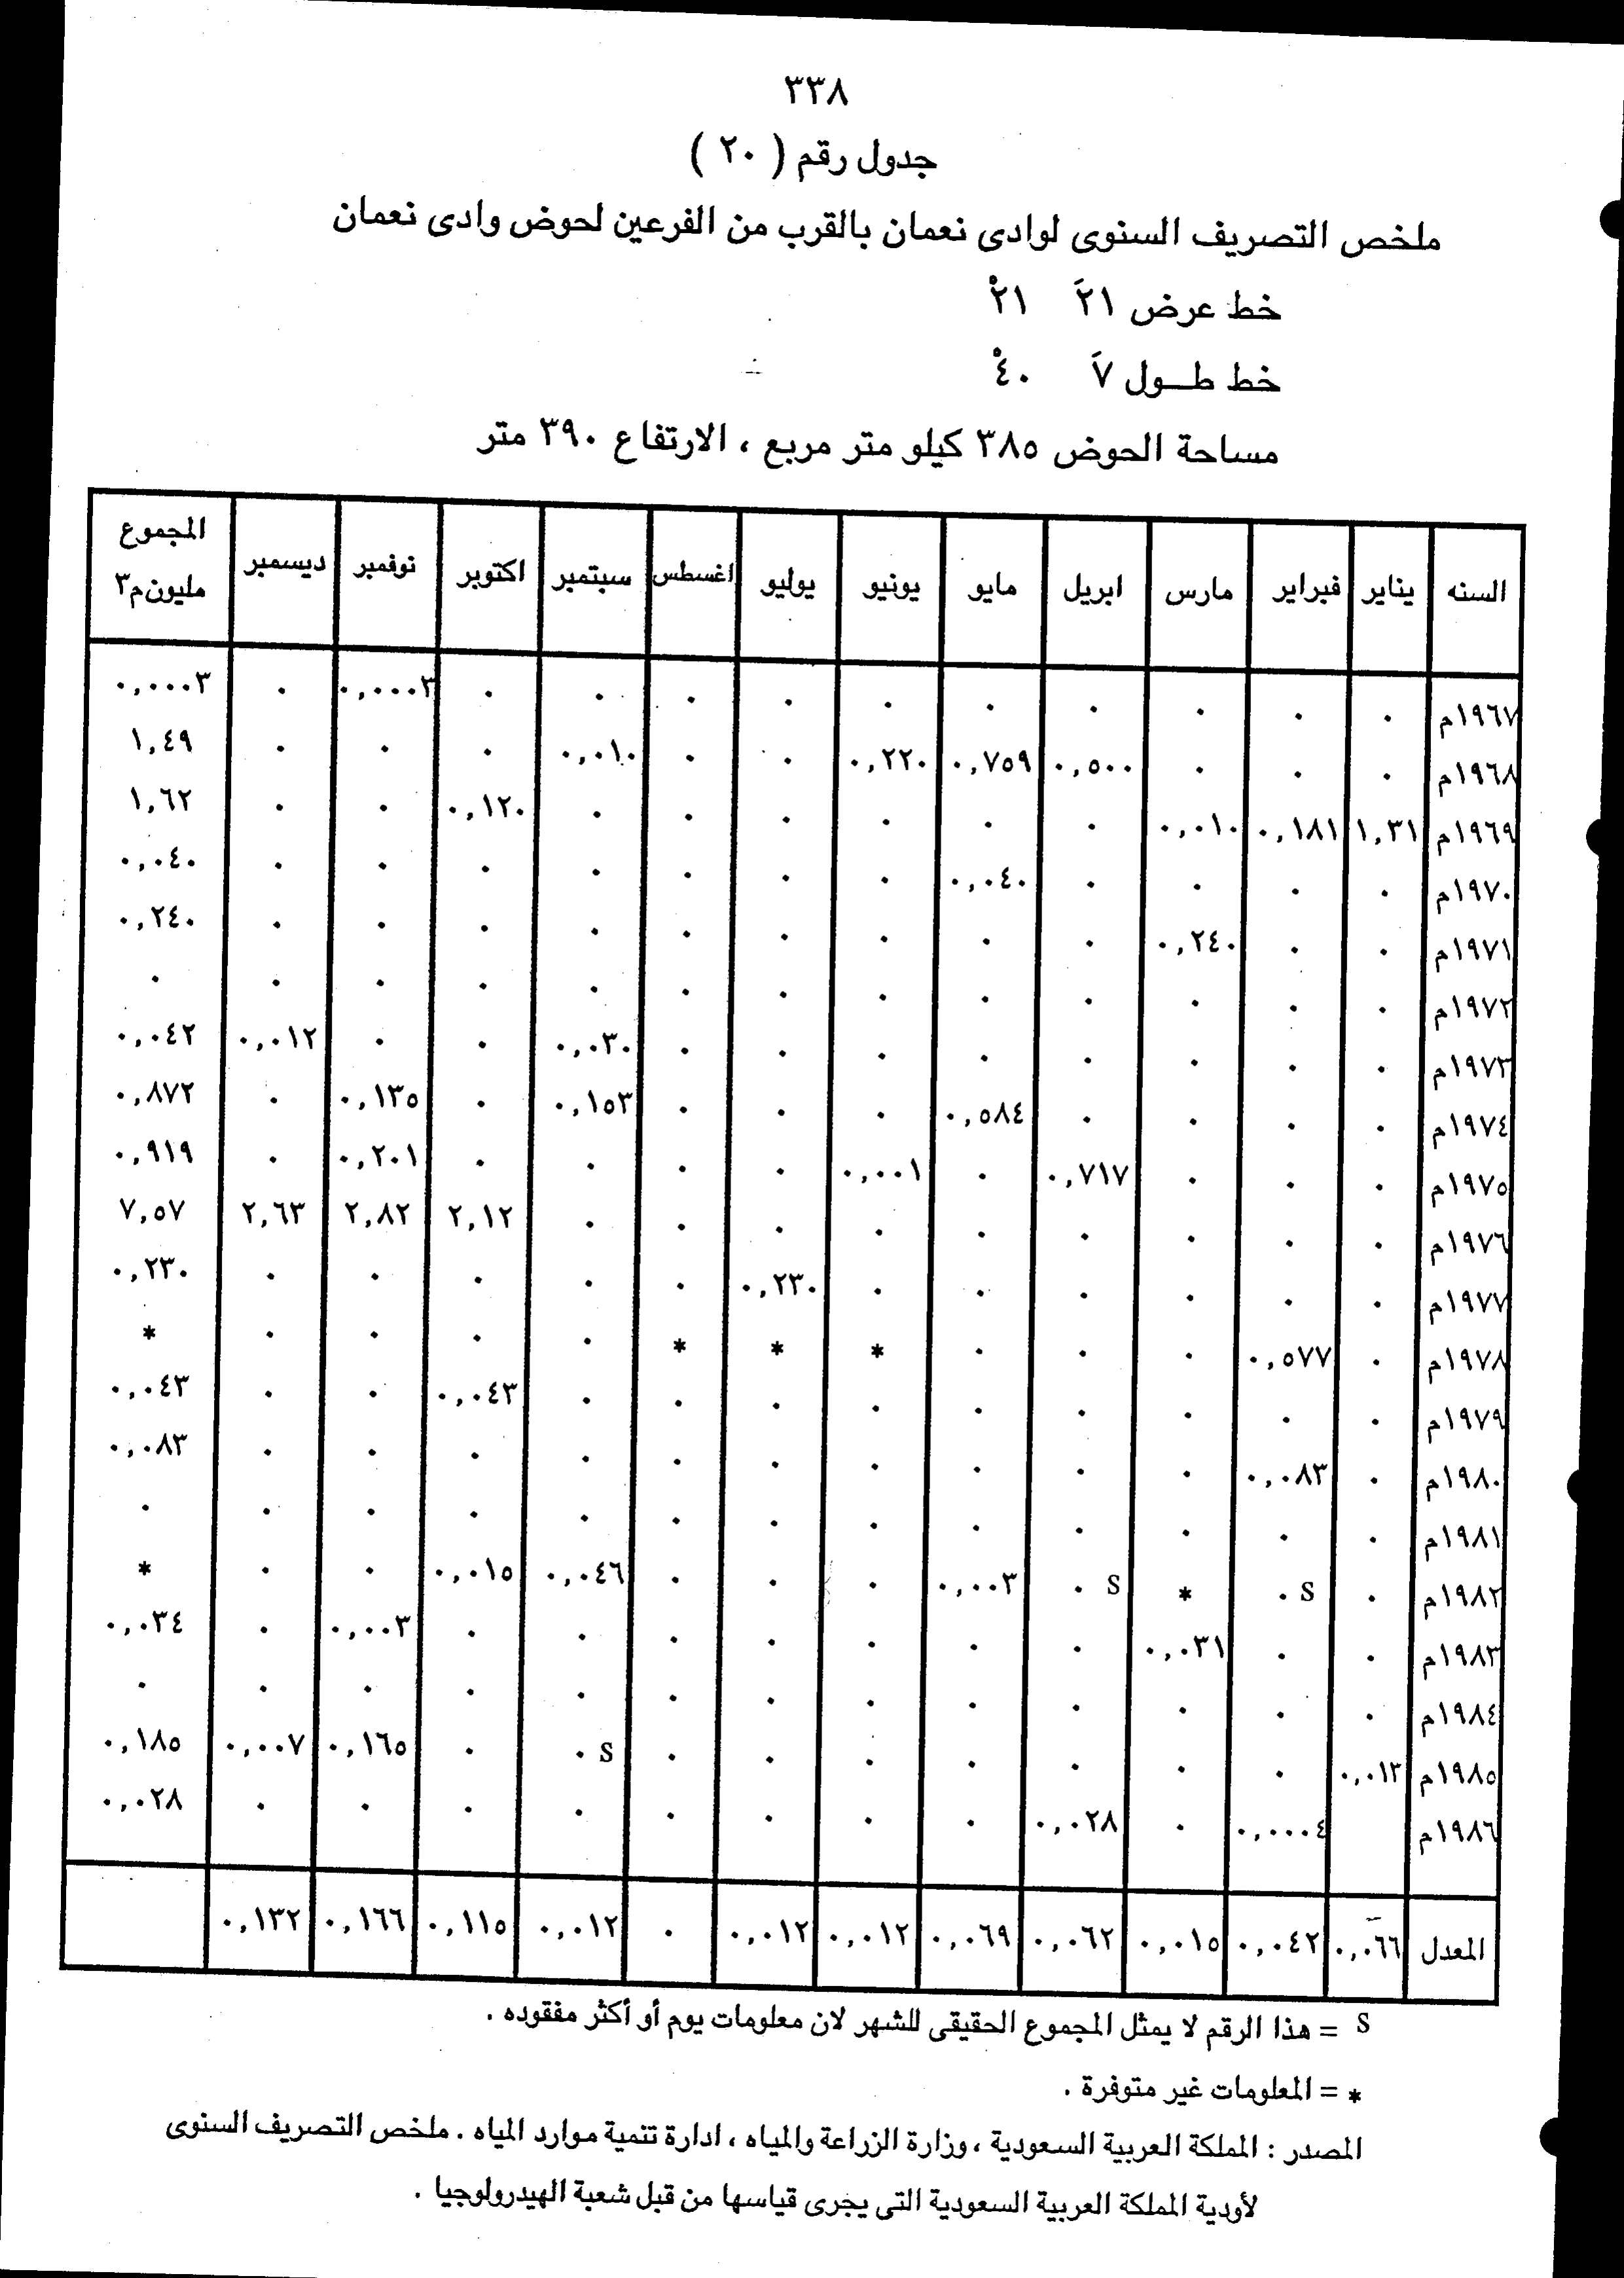 ٣٣٨
جدول رقم ( ٢٠ )
ملخص التصريف السنوى لوادى نعمان بالقرب من الفرعين لحوض وادى نعمان
خط عرض ٢١َ ٢١ْ
خط طـــول ٧َ ٤٠ْ
مساحة الحوض ٣٨٥ كيلو متر مربع ، الارتفاع ٣٩٠ متر
السنه يناير فبراير مارس ابريل مايو يونيو يوليو اغسطس سبتمبر اكتوبر نوفمبر ديسمبر المجموع مليون م٣
١٩٦٧م ٠ ٠ ٠ ٠ ٠ ٠ ٠ ٠ ٠ ٠ ٠,٠٠٠٣ ٠ ٠,٠٠٠٣
١٩٦٨م ٠ ٠ ٠ ٠,٥٠٠ ٠,٧٥٩ ٠,٢٢٠ ٠ ٠ ٠,٠١٠ ٠ ٠ ٠ ١,٤٩
١٩٦٩م ١,٣١ ٠,١٨١ ٠,٠١٠ ٠ ٠ ٠ ٠ ٠ ٠ ٠,١٢٠ ٠ ٠ ١,٦٢
١٩٧٠م ٠ ٠ ٠ ٠ ٠,٠٤٠ ٠ ٠ ٠ ٠ ٠ ٠ ٠ ٠,٠٤٠
١٩٧١م ٠ ٠ ٠,٢٤٠ ٠ ٠ ٠ ٠ ٠ ٠ ٠ ٠ ٠ ٠,٢٤٠
١٩٧٢م ٠ ٠ ٠ ٠ ٠ ٠ ٠ ٠ ٠ ٠ ٠ ٠ ٠
١٩٧٣م ٠ ٠ ٠ ٠ ٠ ٠ ٠ ٠ ٠,٠٣٠ ٠ ٠ ٠,٠١٢ ٠,٠٤٢
١٩٧٤م ٠ ٠ ٠ ٠ ٠,٥٨٤ ٠ ٠ ٠ ٠,١٥٣ ٠ ٠,١٣٥ ٠ ٠,٨٧٢
١٩٧٥م ٠ ٠ ٠ ٠,٧١٧ ٠ ٠,٠٠١ ٠ ٠ ٠ ٠ ٠,٢٠١ ٠ ٠,٩١٩
١٩٧٦م ٠ ٠ ٠ ٠ ٠ ٠ ٠ ٠ ٠ ٢,١٢ ٢,٨٢ ٢,٦٣ ٧,٥٧
١٩٧٧م ٠ ٠ ٠ ٠ ٠ ٠ ٠,٢٣٠ ٠ ٠ ٠ ٠ ٠ ٠,٢٣٠
١٩٧٨م ٠ ٠,٥٧٧ ٠ ٠ ٠ * * * ٠ ٠ ٠ ٠ *
١٩٧٩م ٠ ٠ ٠ ٠ ٠ ٠ ٠ ٠ ٠ ٠,٠٤٣ ٠ ٠ ٠,٠٤٣
١٩٨٠م ٠ ٠,٠٨٣ ٠ ٠ ٠ ٠ ٠ ٠ ٠ ٠ ٠ ٠ ٠,٠٨٣
١٩٨١م ٠ ٠ ٠ ٠ ٠ ٠ ٠ ٠ ٠ ٠ ٠ ٠ ٠
١٩٨٢م ٠ S ٠ * S ٠ ٠,٠٠٣ ٠ ٠ ٠ ٠,٠٤٦ ٠,٠١٥ ٠ ٠ *
١٩٨٣م ٠ ٠ ٠,٠٣١ ٠ ٠ ٠ ٠ ٠ ٠ ٠ ٠,٠٠٣ ٠ ٠,٠٣٤
١٩٨٤م ٠ ٠ ٠ ٠ ٠ ٠ ٠ ٠ ٠ ٠ ٠ ٠ ٠
١٩٨٥م ٠,٠١٣ ٠ ٠ ٠ ٠ ٠ ٠ ٠ S ٠ ٠ ٠,١٦٥ ٠,٠٠٧ ٠,١٨٥
١٩٨٦م ٠,٠٠٠٤ ٠ ٠,٠٢٨ ٠ ٠ ٠ ٠ ٠ ٠ ٠ ٠ ٠,٠٢٨
المعدل ٠,٠٦٦ ٠,٠٤٢ ٠,٠١٥ ٠,٠٦٢ ٠,٠٦٩ ٠,٠١٢ ٠,٠١٢ ٠ ٠,٠١٢ ٠,١١٥ ٠,١٦٦ ٠,١٣٢
S = هذا الرقم لا يمثل المجموع الحقيقى للشهر لان معلومات يوم أو أكثر مفقوده .
* = المعلومات غير متوفرة .
المصدر : المملكة العربية السعودية ، وزارة الزراعة والمياه ، ادارة تنمية موارد المياه . ملخص التصريف السنوى
لأودية المملكة العربية السعودية التى يجرى قياسها من قبل شعبة الهيدرولوجيا .